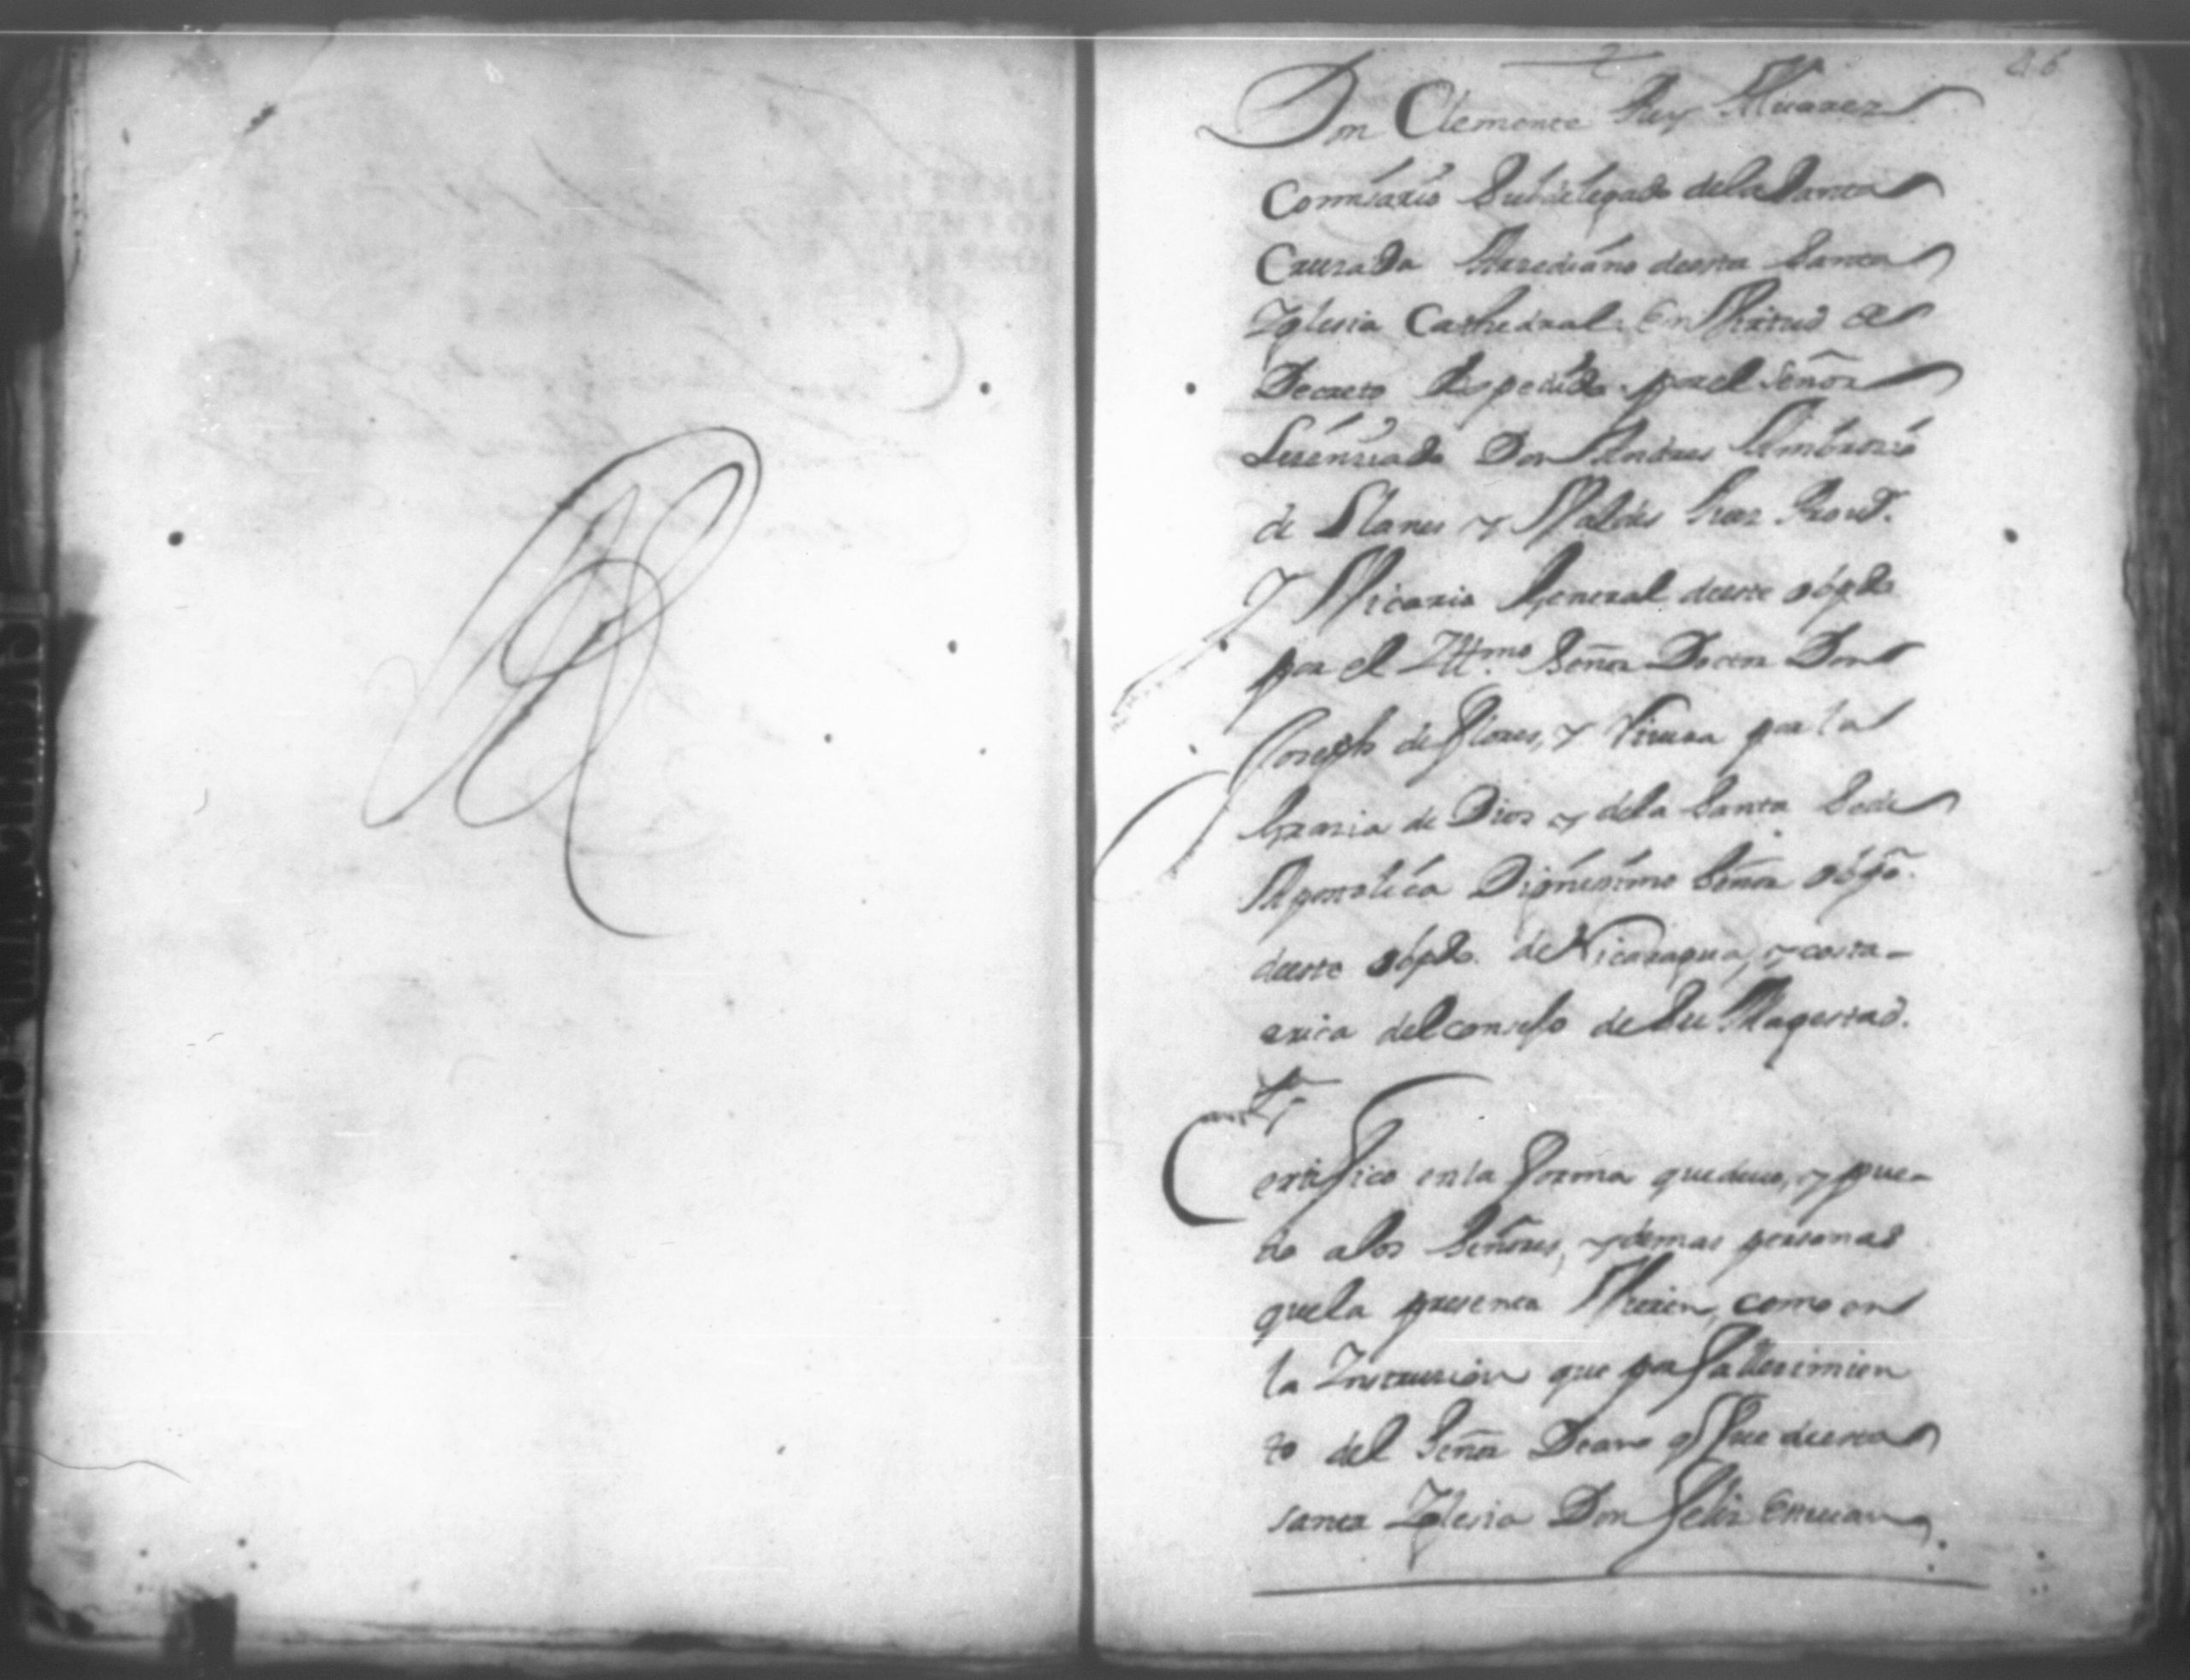 Don Clemente Rey Alvarez
Comisario Subdelegado dela Santa
Cruzada Arcediano deesta Santa
Yglesia Cathedral. En Virtud de
Decreto despedido por el Señor
Licenciado Don Andres Ambrocio
de Llanes y Valdes Juez Prov.
y Vicario General deeste obpdo
por el Yllmo. Señor Doctor Don
Joseph de Flores, y Rivera por la
Gracia de Dios y dela Santa Sede
Apostolica Dignisimo Señor obpo.
deeste obpdo. de Nicaragua, y costa-
rrica del consejo de Su Magestad.
Certifico enla forma quedevo, y pue-
do alos Señores, y demas personas
quela presente Vieren, como en
la Ynstrucion que por fallecimien
to del Señor Dean q fue deesta
santa Yglesia Don Felix